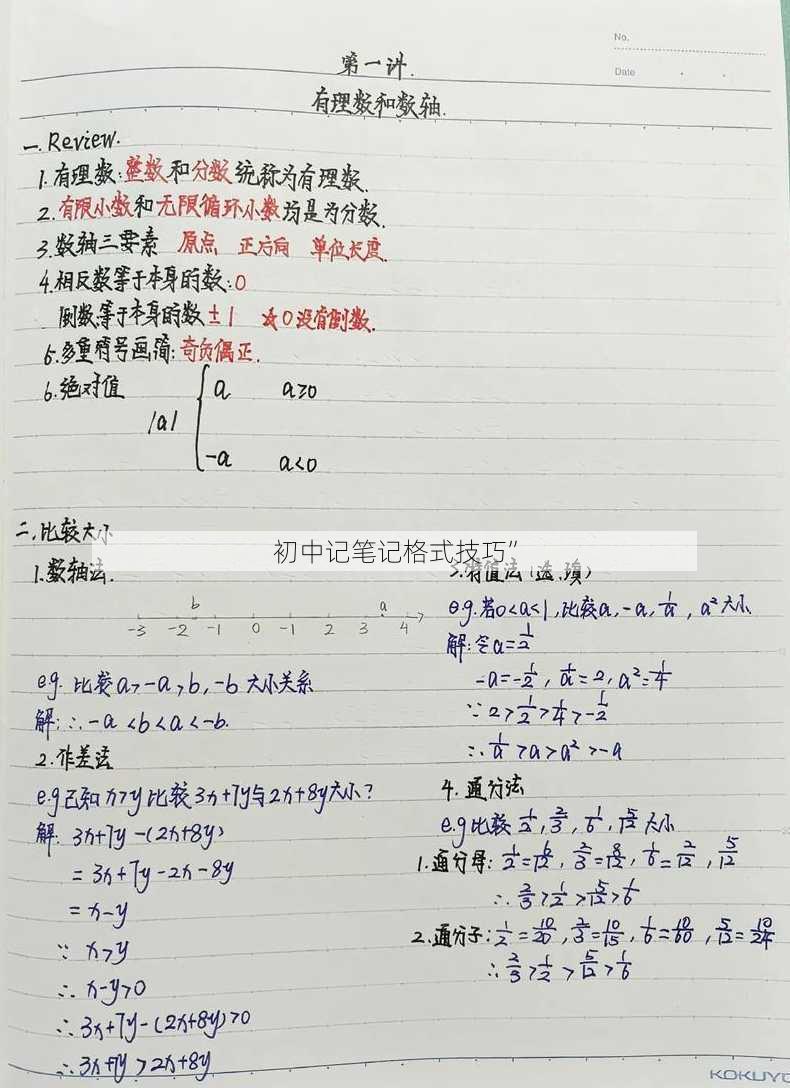 No.
Date
第一讲.
有理数和数轴.
一. Review.
1. 有理数: 整数和分数统称为有理数.
2. 有限小数和无限循环小数均是为分数.
3. 数轴三要素 原点 正方向 单位长度.
4. 相反数等于本身的数: 0
倒数等于本身的数 ±1 ☆0没有倒数.
5. 多重符号画简: 奇负偶正.
6. 绝对值
|a| { a a≥0
-a a<0
二. 比较大小
初中记笔记格式技巧”
1. 数轴法.
b a
-3 -2 -1 0 -1 2 3 4
e.g. 比较a, -a, b, -b 大小关系
解: ∴ -a < b < a < -b.
2. 作差法
e.g 已知 x>y 比较 3x+7y与2x+8y大小?
解: 3x+7y-(2x+8y)
= 3x+7y-2x-8y
= x-y
∵ x>y
∴ x-y>0
∴ 3x+7y-(2x+8y)>0
∴ 3x+7y > 2x+8y
3. 特值法 (选. 填)
e.g. 若0<a<1, 比较a, -a, 1/a, a² 大小
解: 令a=1/2
-a=-1/2, 1/a=2, a²=1/4
∵ 2>1/2>1/4>-1/2
∴ 1/a >a>a²>-a
4. 通分法
e.g 比较 1/2, 2/3, 1/6, 5/12 大小
1. 通分母: 1/2=6/12, 2/3=8/12, 1/6=2/12, 5/12
∴ 2/3>1/2>5/12>1/6
2. 通分子: 1/2=10/20, 2/3=10/15, 1/6=10/60, 5/12=10/24
∴ 2/3>1/2>5/12>1/6
KOKUYO